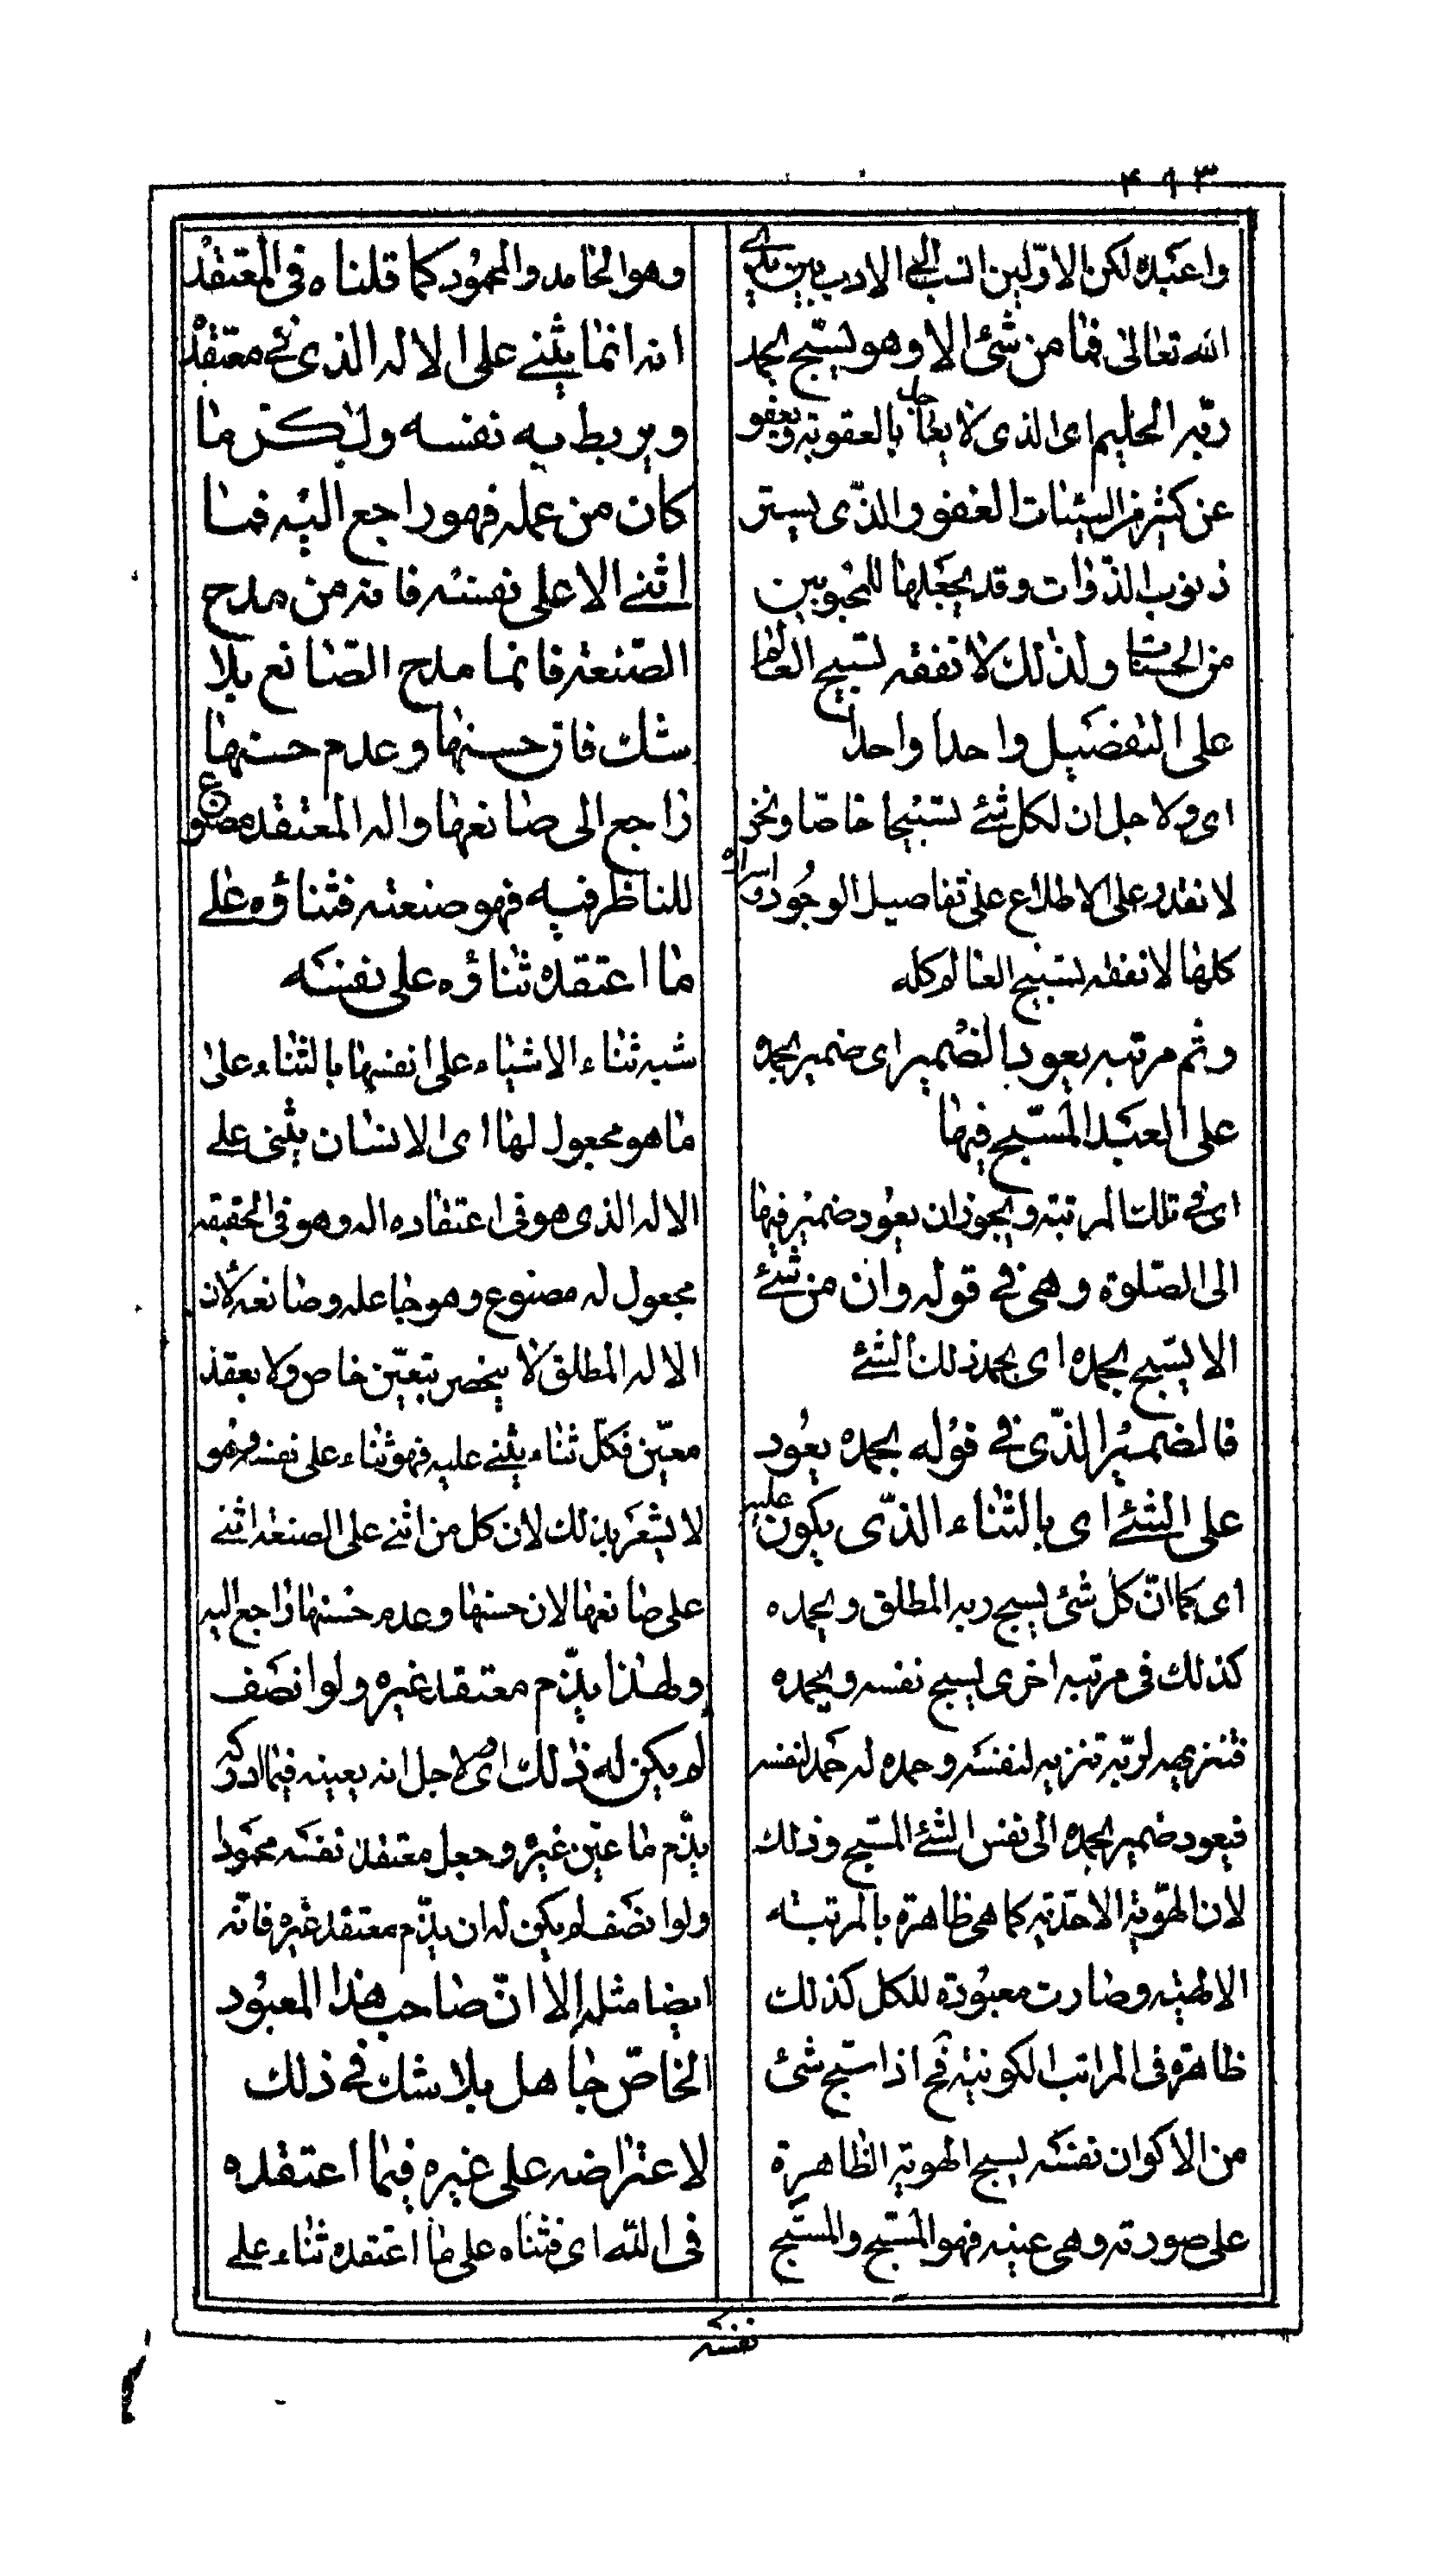 ۴۹۳
واعبده لكن الاولين انسب الى الادب بين يدى
الله تعالىٰ فما من شئ الا وهو يسبّح بحمد
ربّه الحليم اى الذى لا يعاجل بالعقوبة ويعفو
عن كثير من السيئات الغفور الذّى يستر
ذنوب الذّوات وقد يجعلها للمحبوبين
من الحسنات ولذٰلك لا تفقه تسبيح العالم
على التفضيل واحدا واحدا
اى ولاجل ان لكل شئ تسبيحا خاصّا ونحن
لا نقدر على الاطلاع على تفاصيل الوجود واسراره
كلها لا نفقه تسبيح العالم كله
وثم مرتبه يعود بالضمير اى ضمير بحمده
على العبد المسبّح فيها
اى فى تلك المرتبة ويجوز ان يعود ضمير فيها
الى الصّلوة وهى فى قوله وان من شئ
الا يسبّح بحمده اى بحمد ذلك الشئ
فالضمير الذّى فى قوله بحمده يعود
على الشئ اى بالثناء الذّى يكون عليه
اى كما انّ كل شئ يسبح ربه المطلق ويحمده
كذلك فى مرتبه اخرى يسبح نفسه ويحمده
فتنزيهه لربّه تنزيه لنفسه وحمده له حمد لنفسه
فيعود ضمير بحمده الى نفس الشئ المسبّح وذلك
لان الهويّة الاحدّية كما هى ظاهرة بالمرتبه
الالهيّه وصارت معبودة للكل كذلك
ظاهرة فى المراتب الكونيّه فح اذا سبّح شئ
من الاكوان نفسه يسبح الهوية الظاهرة
على صورته وهى عينه فهو المسبّح والمسبَّح
وهو الحامد والمحمود كما قلناه فى المعتقد
انه انما يثنے على الا له الذى فى معتقده
ويربط به نفسه ولٰكن ما
كان من عمله فهو راجع اليه فما
اثنے الا على نفسه فانه من مدح
الصّنعه فانما مدح الصّانع بلا
شك فان حسنها وعدم حسنها
راجع الى صانعها واله المعتقد مصنوع
للناظر فيه فهو صنعته فثناؤه على
ما اعتقده ثناؤه على نفسه
شبه ثناء الاشياء على انفسها بالثناء على
ما هو مجعول لها اى الانسان يثنى على
الاله الذى هو فى اعتقاده اله وهو فى الحقيقه
مجعول له مصنوع وهو جاعله وصانعه لان
الاله المطلق لا ينحصر بتعيّن خاص ولا بعقد
معيّن فكلّ ثناء يثنے عليه فهو ثناء على نفسه وهو
لا يشعر بذلك لان كل من اثنے على الصنعه اثنے
على صانعها لان حسنها وعدم حسنها راجع اليه
ولهذا يذّم معتقد غيره ولو انصف
لم يكن له ذٰلك اى لاجل انه يعينه فيما ادركه
يذّم ما عيّن غيره وجعل معتقد نفسه محمودا
ولو انصف لم يكن له ان يذّم معتقد غيره فانّه
ايضا مثله الا انّ صاحب هذا المعبود
الخاصّ جاهل بلا شك فى ذلك
لاعتراضه على غيره فيما اعتقده
فى اللّه اى فثناه على ما اعتقده ثناء على
نفسه